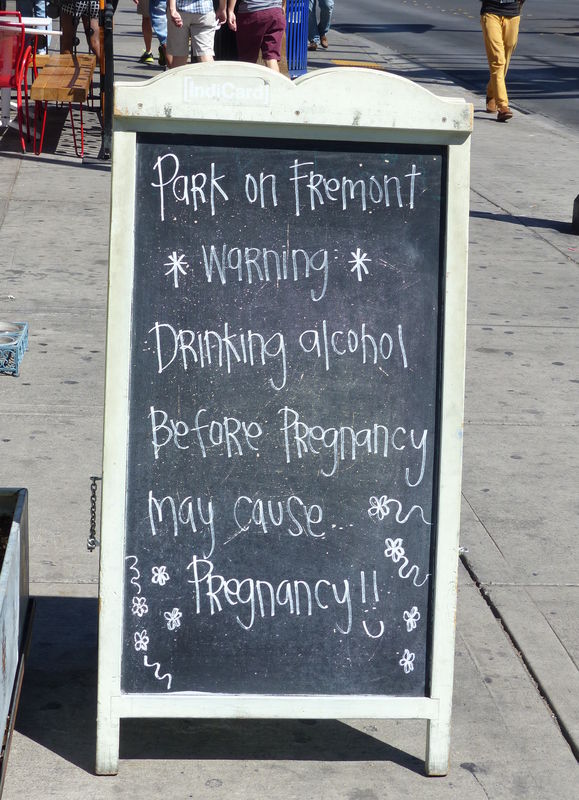 IndiCard
Park on Fremont
* Warning *
Drinking alcohol
Before Pregnancy
may cause
Pregnancy!!